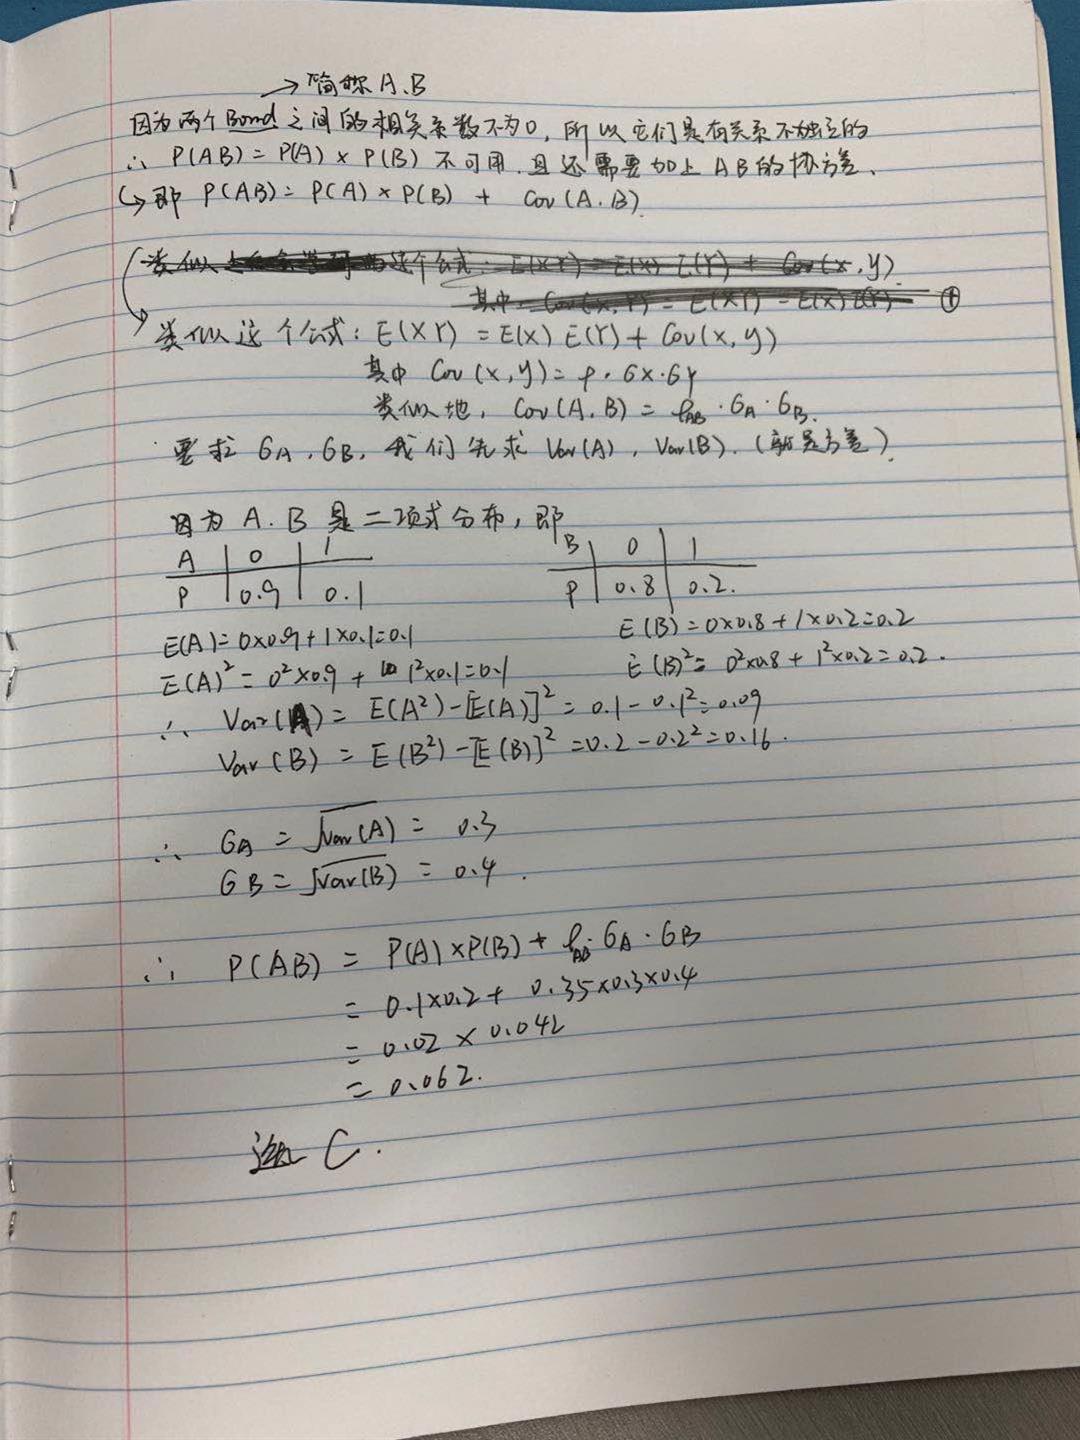 →简称A.B
因为两个Bond之间的相关系数不为0,所以它们是有关系不独立的
∴ P(AB)=P(A)×P(B) 不可用.且还需要加上AB的协方差、
↳即 P(AB)=P(A)×P(B) + Cov(A.B).
类似这个公式: E(XY)=E(X) E(Y)+Cov(x,y)
其中 Cov(x,y)=ρ·σx·σy
类似地, Cov(A.B)=ρAB·σA·σB.
要求σA,σB,我们先求Var(A),Var(B).(就是方差).
因为A.B是二项式分布,即
A 0 1
P 0.9 0.1
B 0 1
P 0.8 0.2.
E(A)=0×0.9+1×0.1=0.1
E(B)=0×0.8+1×0.2=0.2
E(A)²=0²×0.9+1²×0.1=0.1
E(B)²=0²×0.8+1²×0.2=0.2.
∴ Var(A)=E(A²)-[E(A)]²=0.1-0.1²=0.09
Var(B)=E(B²)-[E(B)]²=0.2-0.2²=0.16.
∴ σA=√Var(A)=0.3
σB=√Var(B)=0.4.
∴ P(AB)=P(A)×P(B)+ρAB·σA·σB
=0.1×0.2+0.35×0.3×0.4
=0.02×0.042
=0.062.
选C.